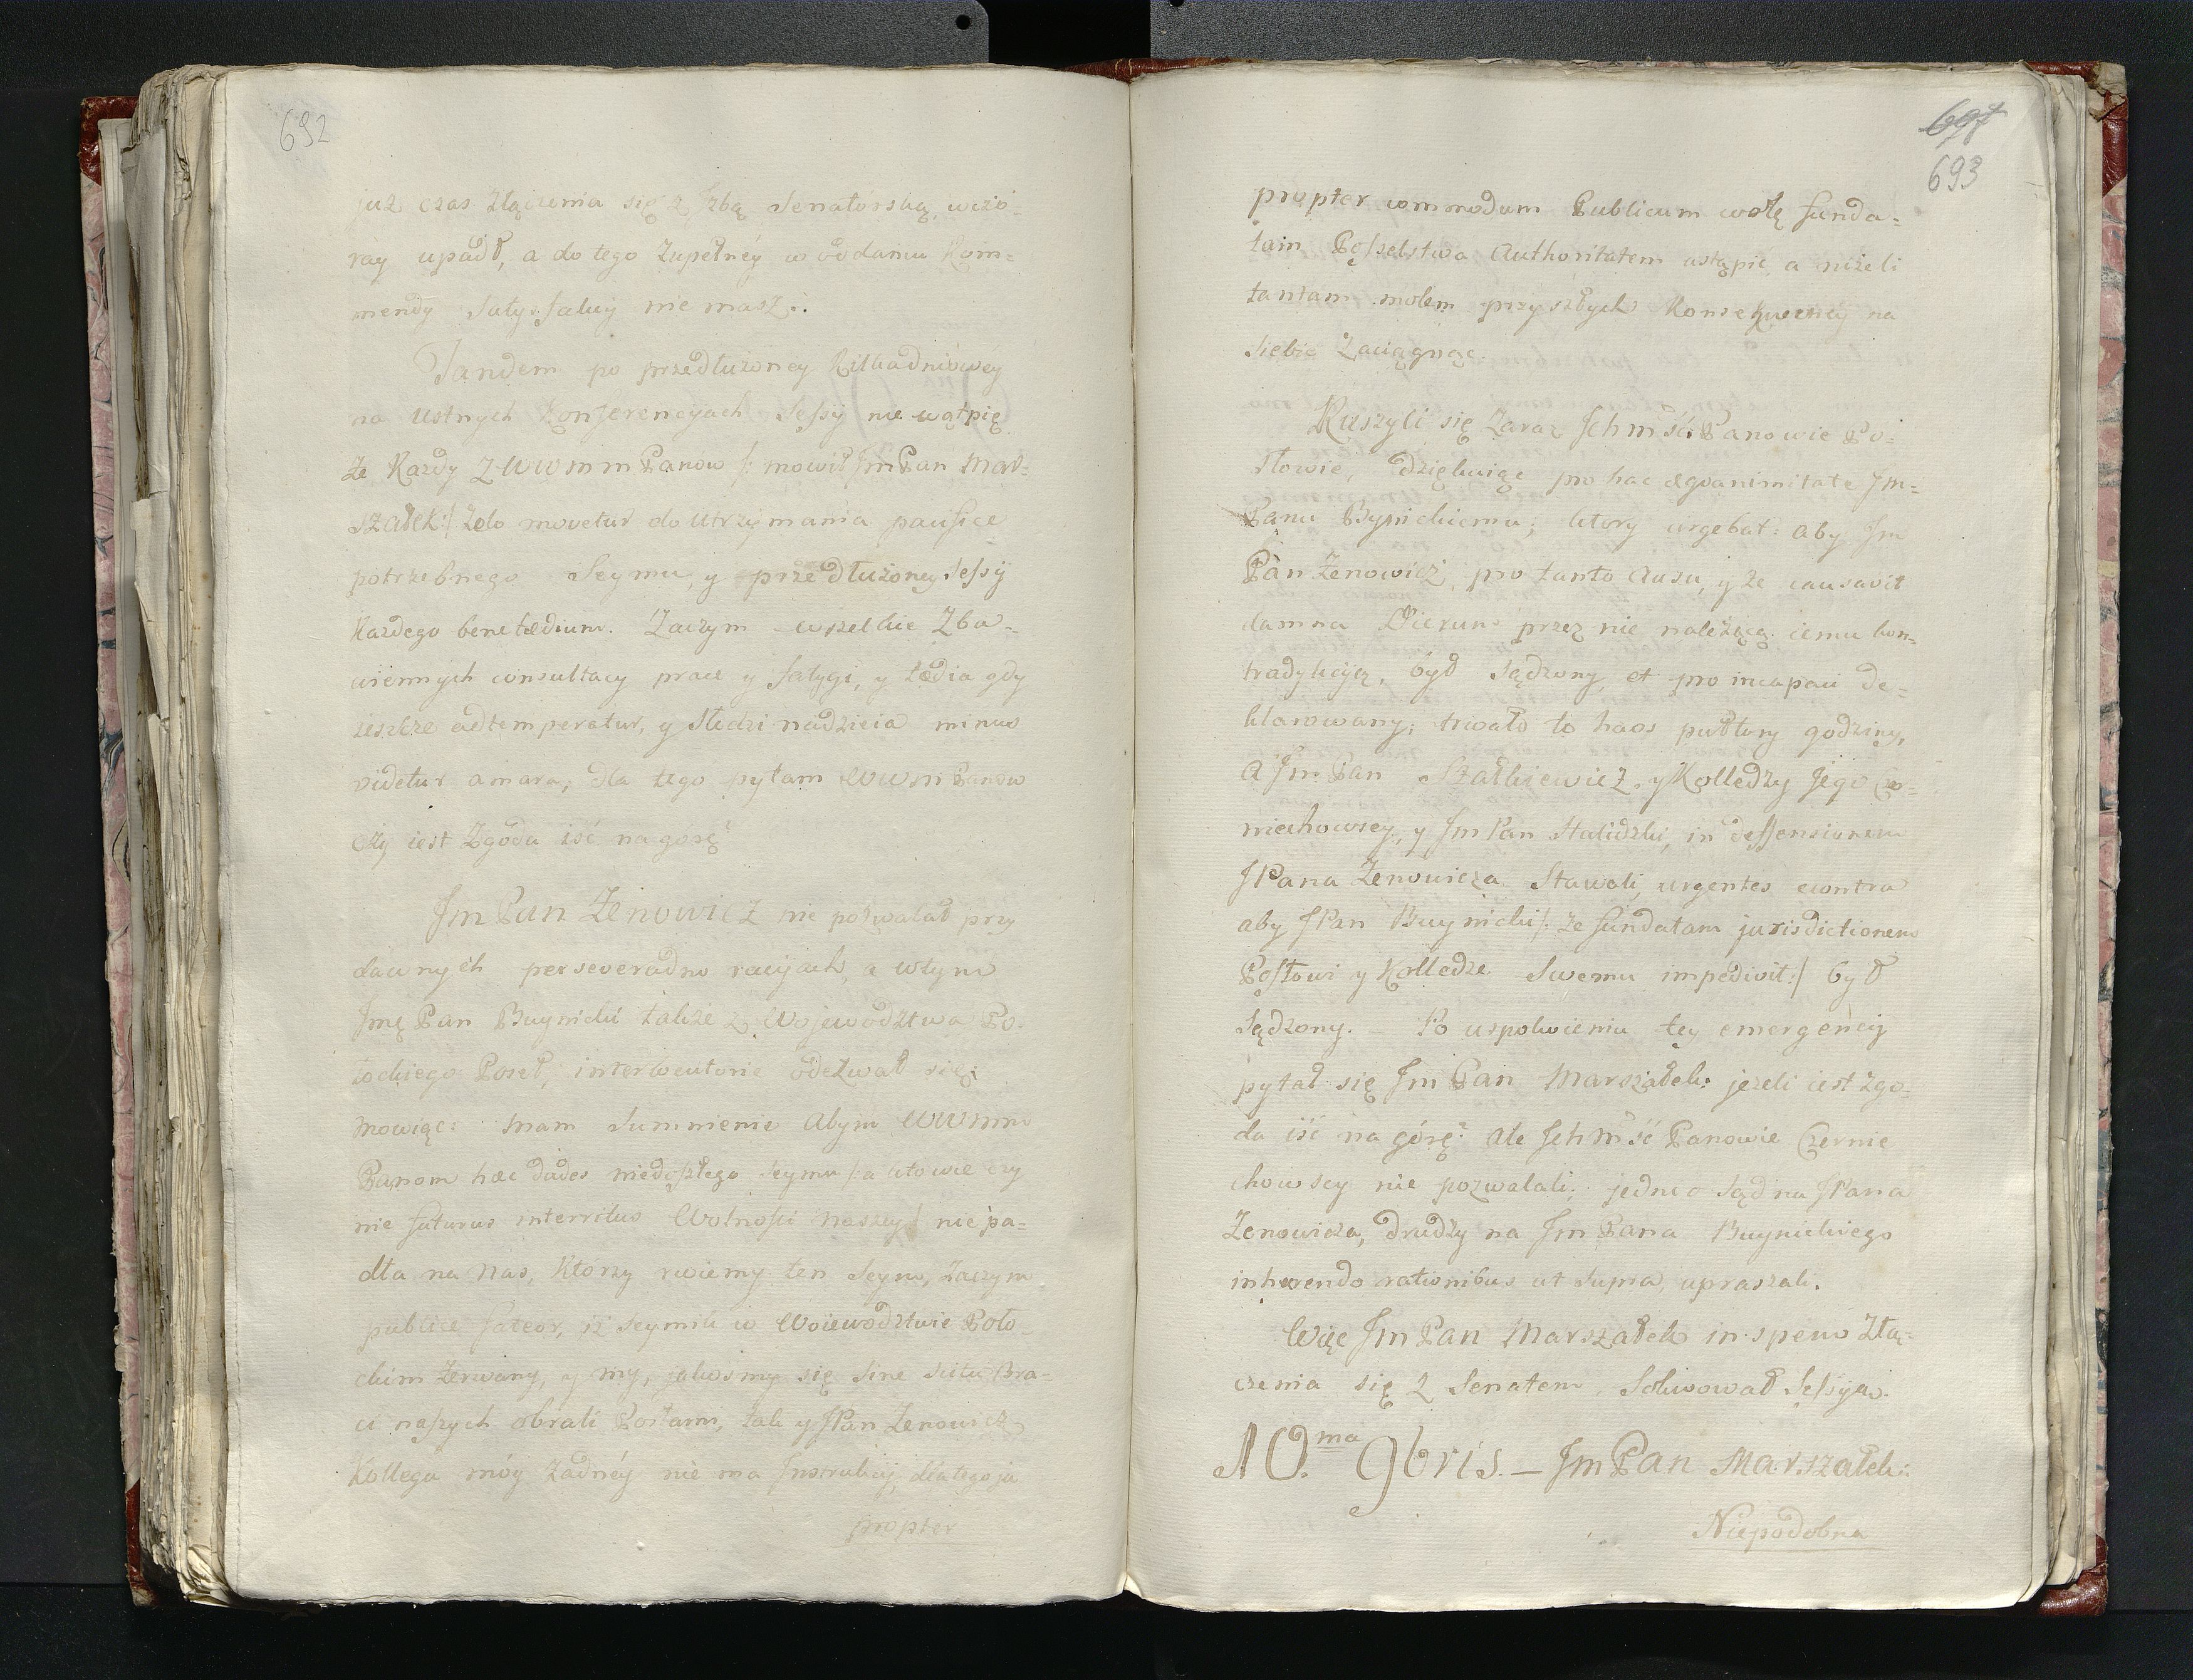 692
już czas złączenia się z Jzbą Senatorską, wczo-
ray upadł, a do tego zupełnéy w oddaniu Kom-
mendy Satysfakcij nie masz.
Tandem po przedłużoney kilkadniowéy
na ustnych konferencyjach Sessyi nie wątpię
że każdy z WWmm Panow /: mowił Jm Pan Mar-
szałek :/ zelo movetur do utrzymania pacifice
potrzebnego Seymu, y przedłużoney Sessyi
każdego benetædium. Zaczym wszelkie zba-
wiennych consultacy prace y fatygi, y tædia gdy
ieszcze adtemperatur, y słodzi nadzieia minus
videtur amara, dla tego pytam WWm Panow
czy iest zgoda iść na gorę?
Jm Pan Zenowicz nie pozwalał przy
dawnych perseverando racyjach, a wtym
Jmę Pan Buynicki także z Wojewodztwa Po-
łockiego Poseł, interlocutorie odezwał się,
mowiąc: mam Sumnienie abym WWmm
Panom hæc dudes niedoszłego Seymu /: a ktowie czy
nie futurus interritus Wolnosci naszey :/ nie pa-
dła na nas, ktorzy rwiemy ten Seym, zaczym
publice fateor, iż Seymik w Woiewodztwie Poło-
ckim zerwany, y my, jakosmy się sine scitu Bra-
ci naszych obrali Posłami, tak y JPan Zenowicz
Kollega móy żadnéy nie ma Jnstrukcij, dlatego ja
propter
697
693
propter commodum Publicum wolę funda-
tam Poselstwa Authoritatem ustąpić, a niżeli
tantam molem przyszłych konsekwencij na
siebie zaciągnąć.
Ruszyli się zaraz Jchmść Panowie Po-
słowie, dziękuiąc pro hac æqvanimitate Jm-
Panu Buynickiemu, ktory urgebat: aby Jm
Pan Zenowicz, pro tanto ausu, y że causavit
damna Dierum przez nie należącą iemu kon-
tradykcyą, był sądzony, et pro incapaci de-
klarowany; trwało to haos pułtory godziny,
a Jm Pan Szałkiewicz, y Kolledzy Jego Czer-
niechowscy, y Jm Pan Skalidzki, in deffensionem
JPana Zenowicza stawali, urgentes econtra
aby JPan Buynicki /: że fundatam jurisdictionem
Posłowi y Kolledze Swemu impedivit :/ był
sądzony. – Po uspokoieniu téy emergencij
pytał się Jm Pan Marszałek: jeżeli iest zgo-
da iść na górę? ale Jchmść Panowie Czernie
chowscy nie pozwalali; jedni o Sąd na JPana
Zenowicza, drudzy na Jm Pana Buynickiego
inhærendo rationibus ut supra, upraszali.
Więc Jm Pan Marszałek in spem złą-
czenia się z Senatem, Solwował Sessyą.
10.ma 9bris. – Jm Pan Marszałek:
Niepodobna